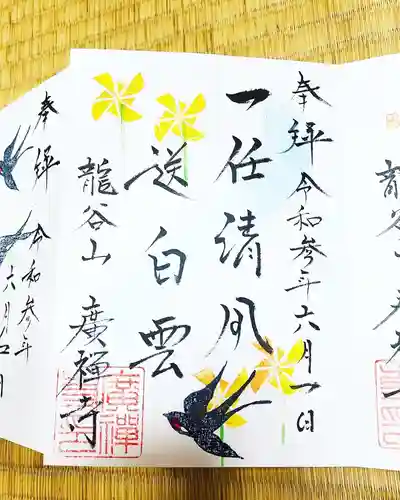 奉拝 令和参年六月一日
一任清風
送白雲
龍谷山 廣禅寺
廣禅
奉拝 令和参年
六月
龍谷山